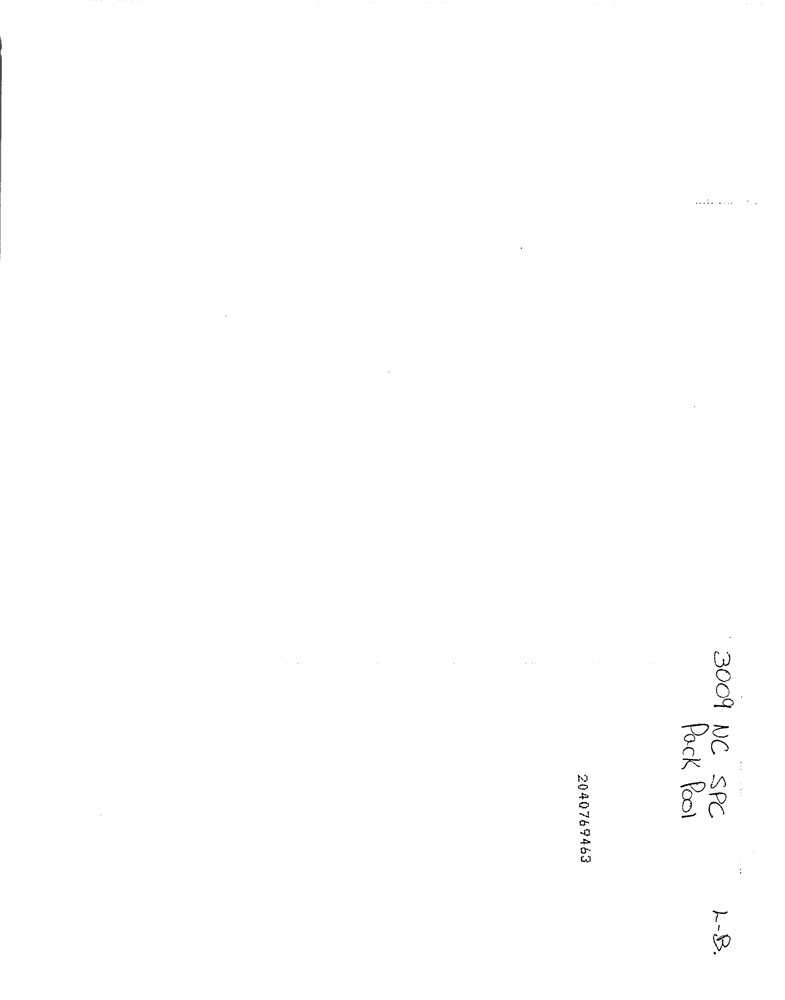 3009 NC SPC L-B.
Pack Pool
2040769463